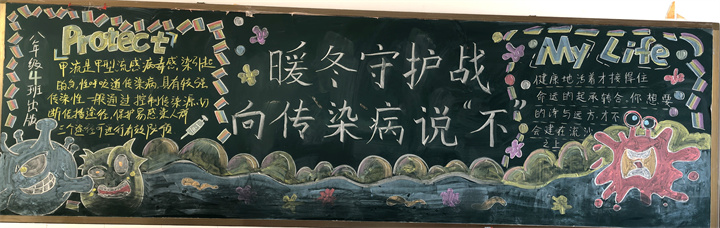 八年级4班出版
Protect
甲流是甲型流感病毒感染引起
的急性呼吸道传染病,具有较强
传染性,一般通过控制传染源、切
断传播途径、保护易感染人群
三个途径可进行有效防
暖冬守护战
向传染病说“不”
My Life
健康地活着才接得住
命运的起承转合,你想要
的诗与远方,才不
会建在流沙
之上